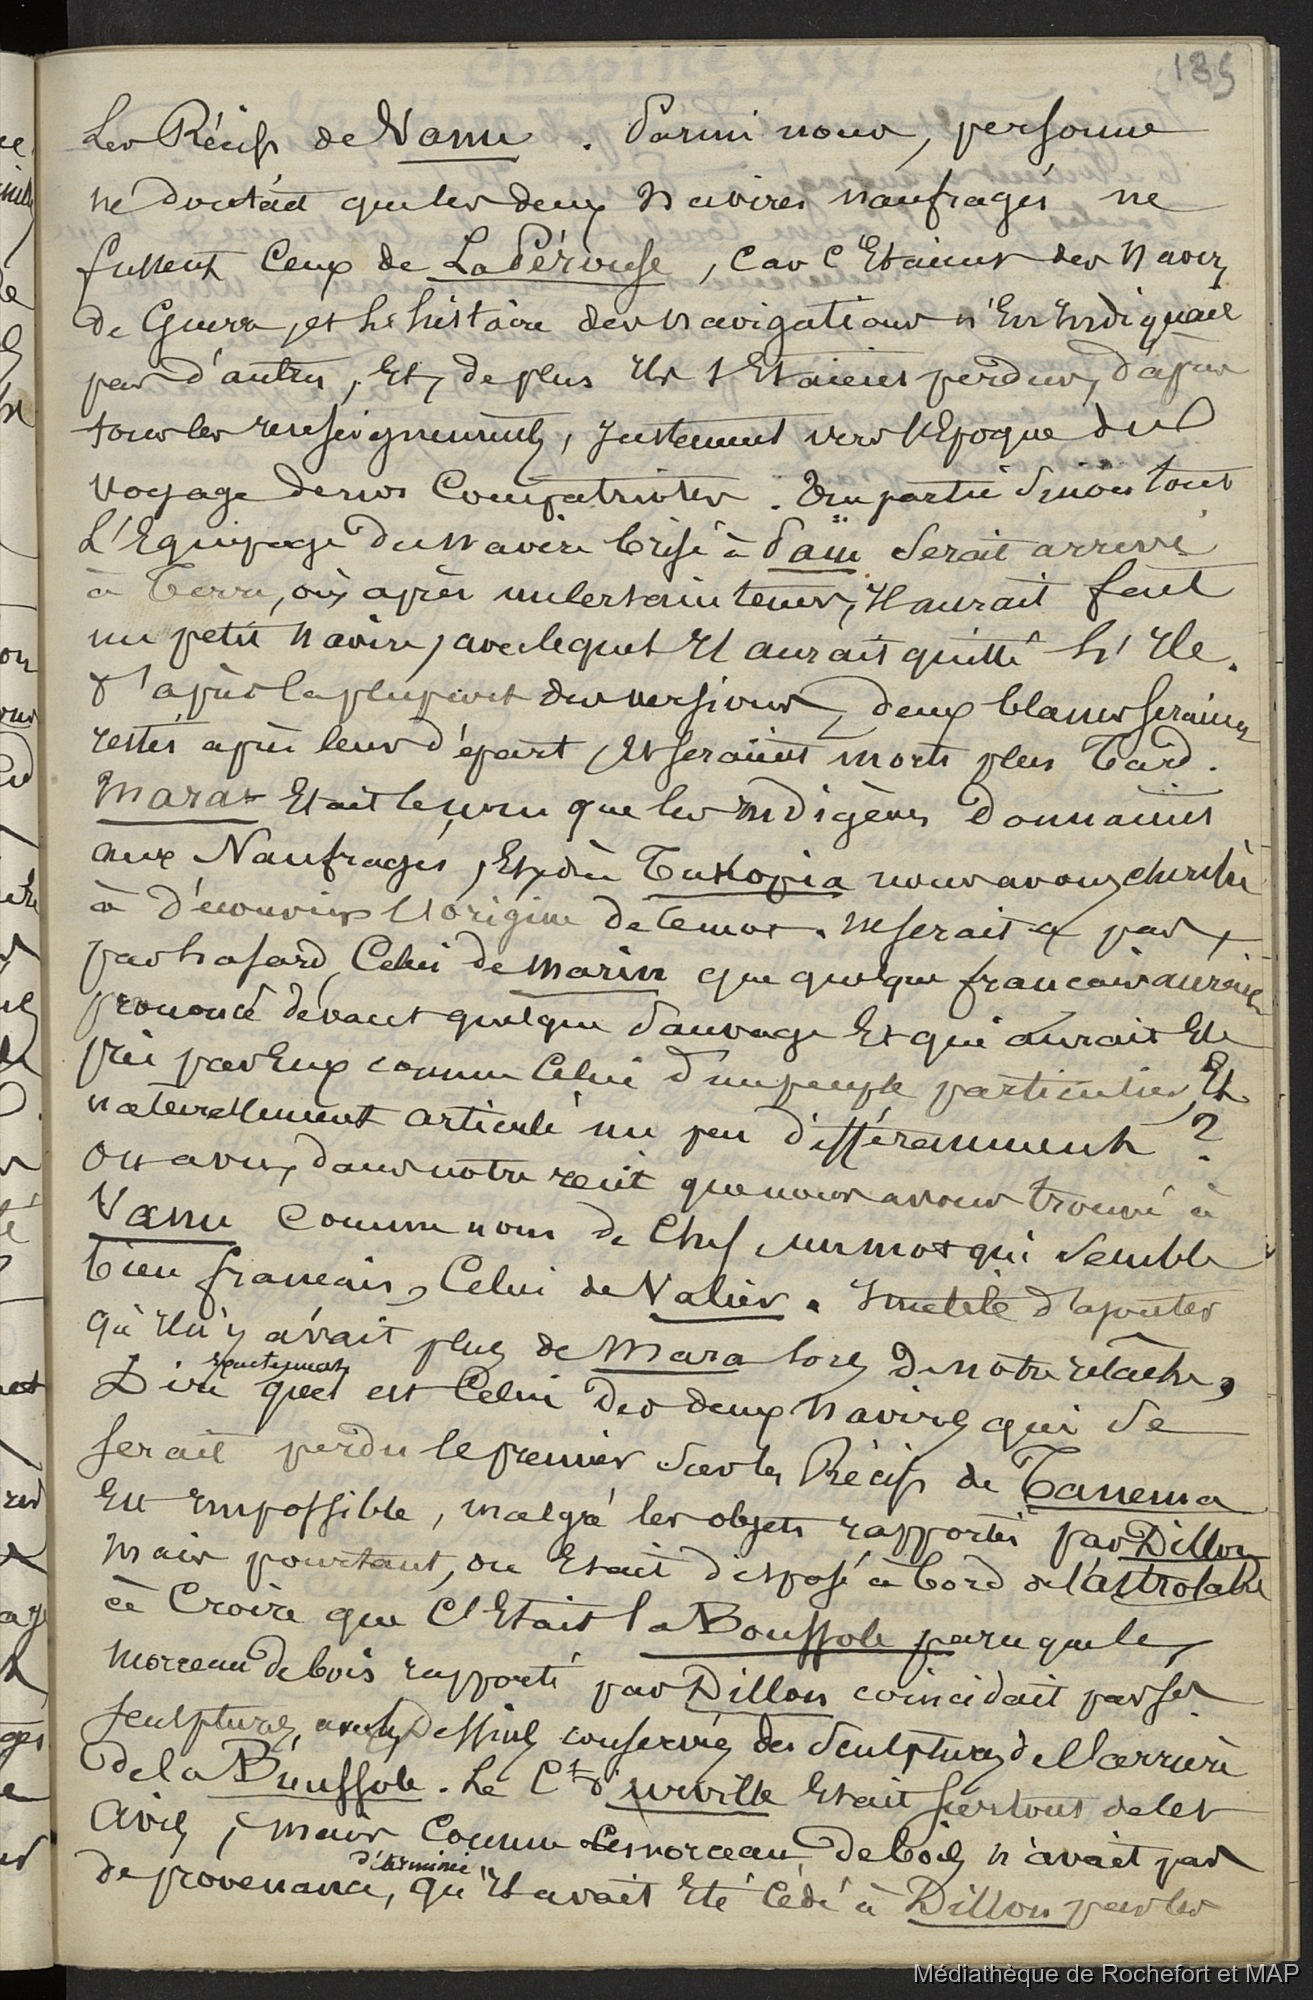 135
Les Récifs de Vanu. Parmi nous, personne
ne doutait que les deux Navires naufragés ne
fussent ceux de La Pérouse, car c'Etaient des Navires
de Guerre, et L'histoire des navigations n'En Indiquait
pas d'autres, Et, de plus Ils s'Etaient perdus, d'après
tous les renseignements, justement vers l'Epoque du
voyage de nos Compatriotes. Une partie Sinon tout
L'Equipage du Navire brisé à Païu Serait arrivé
à Terre, où, après un certain tems, Il aurait fait
un petit Navire, avec lequel Il aurait quitté L'Ile.
D'après la plupart des versions, deux blancs seraient
restés après leur départ, Et seraient morts plus Tard.
Mara Etait le nom que les Indigènes Donnaient
aux Naufragés, Et, dès Tukopia nous avons cherché
à Découvrir L'origine de ce mot. Ne serait-ce pas,
par hasard, Celui de Marin que quelque français aurait
prononcé devant quelque Sauvage Et qui aurait Eté
pris par Eux comme Celui d'un peuple particulier, Et
naturellement articulé un peu différemment ?
On a vu, dans notre récit que nous avons trouvé à
Vanu Comme nom de Chef un mot qui Semble
bien français, Celui de Valier. Inutile d'ajouter
qu'Il n'y avait plus de Mara lors De notre relâche,
exactement
Dire quel est Celui Des deux Navires qui Se
serait perdu le premier Sur les Récifs de Tanema
Est Impossible, malgré les objets rapportés par Dillon
Mais pourtant, on Etait Disposé à bord de l'astrolabe
à Croire que C'Etait la Boussole parce que le
Morceau de bois rapporté par Dillon coïncidait par ses
Sculptures, avec les Dessins conservés des Sculptures de L'arrière
de la Boussole. Le Ct d'urville Etait surtout de cet
Avis, mais Comme Ce morceau De bois n'avait pas
déterminée
de provenance, qu'Il avait Eté Cédé à Dillon par les
Médiathèque de Rochefort et MAP